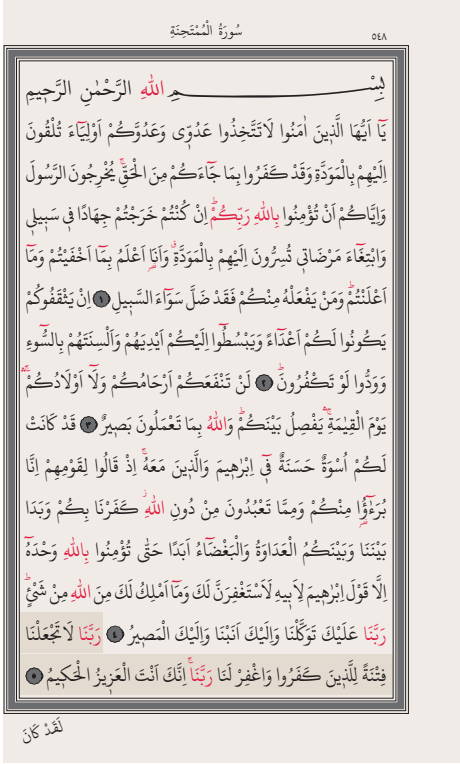 سُورَةُ الْمُمْتَحِنَةِ
٥٤٨
بِسْمِ اللهِ الرَّحْمٰنِ الرَّحٖيمِ
يَٓا اَيُّهَا الَّذٖينَ اٰمَنُوا لَا تَتَّخِذُوا عَدُوّٖى وَعَدُوَّكُمْ اَوْلِيَٓاءَ تُلْقُونَ
اِلَيْهِمْ بِالْمَوَدَّةِ وَقَدْ كَفَرُوا بِمَا جَٓاءَكُمْ مِنَ الْحَقِّۚ يُخْرِجُونَ الرَّسُولَ
وَاِيَّاكُمْ اَنْ تُؤْمِنُوا بِاللهِ رَبِّكُمْؕ اِنْ كُنْتُمْ خَرَجْتُمْ جِهَادًا فٖى سَبٖيلٖى
وَابْتِغَٓاءَ مَرْضَاتٖى تُسِرُّونَ اِلَيْهِمْ بِالْمَوَدَّةِۗ وَاَنَا۬ اَعْلَمُ بِمَٓا اَخْفَيْتُمْ وَمَٓا
اَعْلَنْتُمْؕ وَمَنْ يَفْعَلْهُ مِنْكُمْ فَقَدْ ضَلَّ سَوَٓاءَ السَّبٖيلِ ﴿١﴾ اِنْ يَثْقَفُوكُمْ
يَكُونُوا لَكُمْ اَعْدَٓاءً وَيَبْسُطُٓوا اِلَيْكُمْ اَيْدِيَهُمْ وَاَلْسِنَتَهُمْ بِالسُّٓوءِ
وَوَدُّوا لَوْ تَكْفُرُونَؕ ﴿٢﴾ لَنْ تَنْفَعَكُمْ اَرْحَامُكُمْ وَلَٓا اَوْلَادُكُمْۚۛ
يَوْمَ الْقِيٰمَةِۚۛ يَفْصِلُ بَيْنَكُمْؕ وَاللهُ بِمَا تَعْمَلُونَ بَصٖيرٌ ﴿٣﴾ قَدْ كَانَتْ
لَكُمْ اُسْوَةٌ حَسَنَةٌ فٖٓى اِبْرٰهٖيمَ وَالَّذٖينَ مَعَهُۚ اِذْ قَالُوا لِقَوْمِهِمْ اِنَّا
بُرَءٰٓؤُ۬ا مِنْكُمْ وَمِمَّا تَعْبُدُونَ مِنْ دُونِ اللهِؗ كَفَرْنَا بِكُمْ وَبَدَا
بَيْنَنَا وَبَيْنَكُمُ الْعَدَاوَةُ وَالْبَغْضَٓاءُ اَبَدًا حَتّٰى تُؤْمِنُوا بِاللهِ وَحْدَهُٓ
اِلَّا قَوْلَ اِبْرٰهٖيمَ لِاَبٖيهِ لَاَسْتَغْفِرَنَّ لَكَ وَمَٓا اَمْلِكُ لَكَ مِنَ اللهِ مِنْ شَيْءٍؕ
رَبَّنَا عَلَيْكَ تَوَكَّلْنَا وَاِلَيْكَ اَنَبْنَا وَاِلَيْكَ الْمَصٖيرُ ﴿٤﴾ رَبَّنَا لَا تَجْعَلْنَا
فِتْنَةً لِلَّذٖينَ كَفَرُوا وَاغْفِرْ لَنَا رَبَّنَاۚ اِنَّكَ اَنْتَ الْعَزٖيزُ الْحَكٖيمُ ﴿٥﴾
لَقَدْ كَانَ